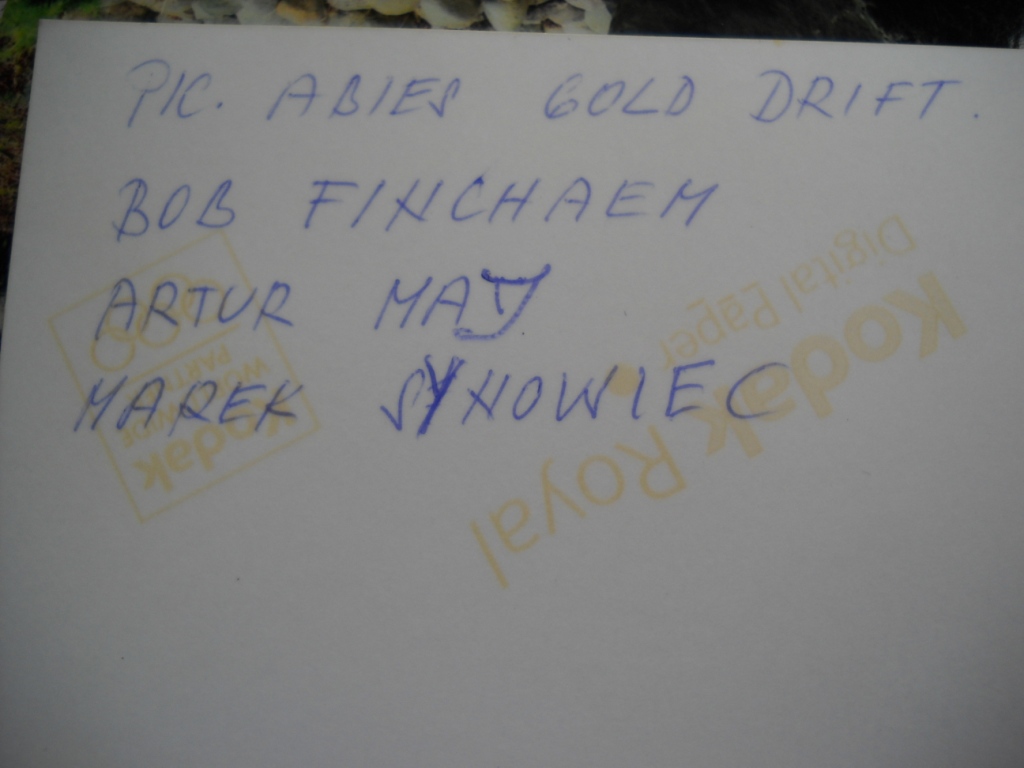 PIC. ABIES GOLD DRIFT.
BOB FINCHAEM
ARTUR MAJ
MAREK SYNOWIEC
Kodak Royal
Digital Paper
kodak